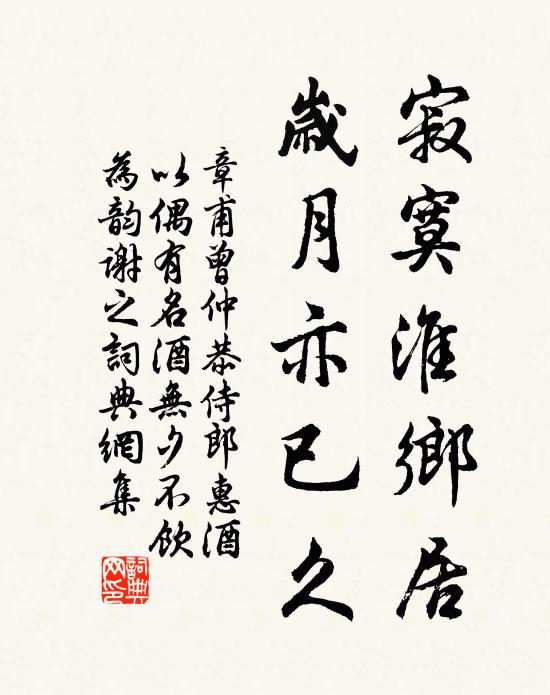 寂寞淮鄉居
歲月亦已久
章甫曾仲恭侍郎惠酒
以偶有名酒無夕不飲
為韵謝之詞典網集
詞典网印